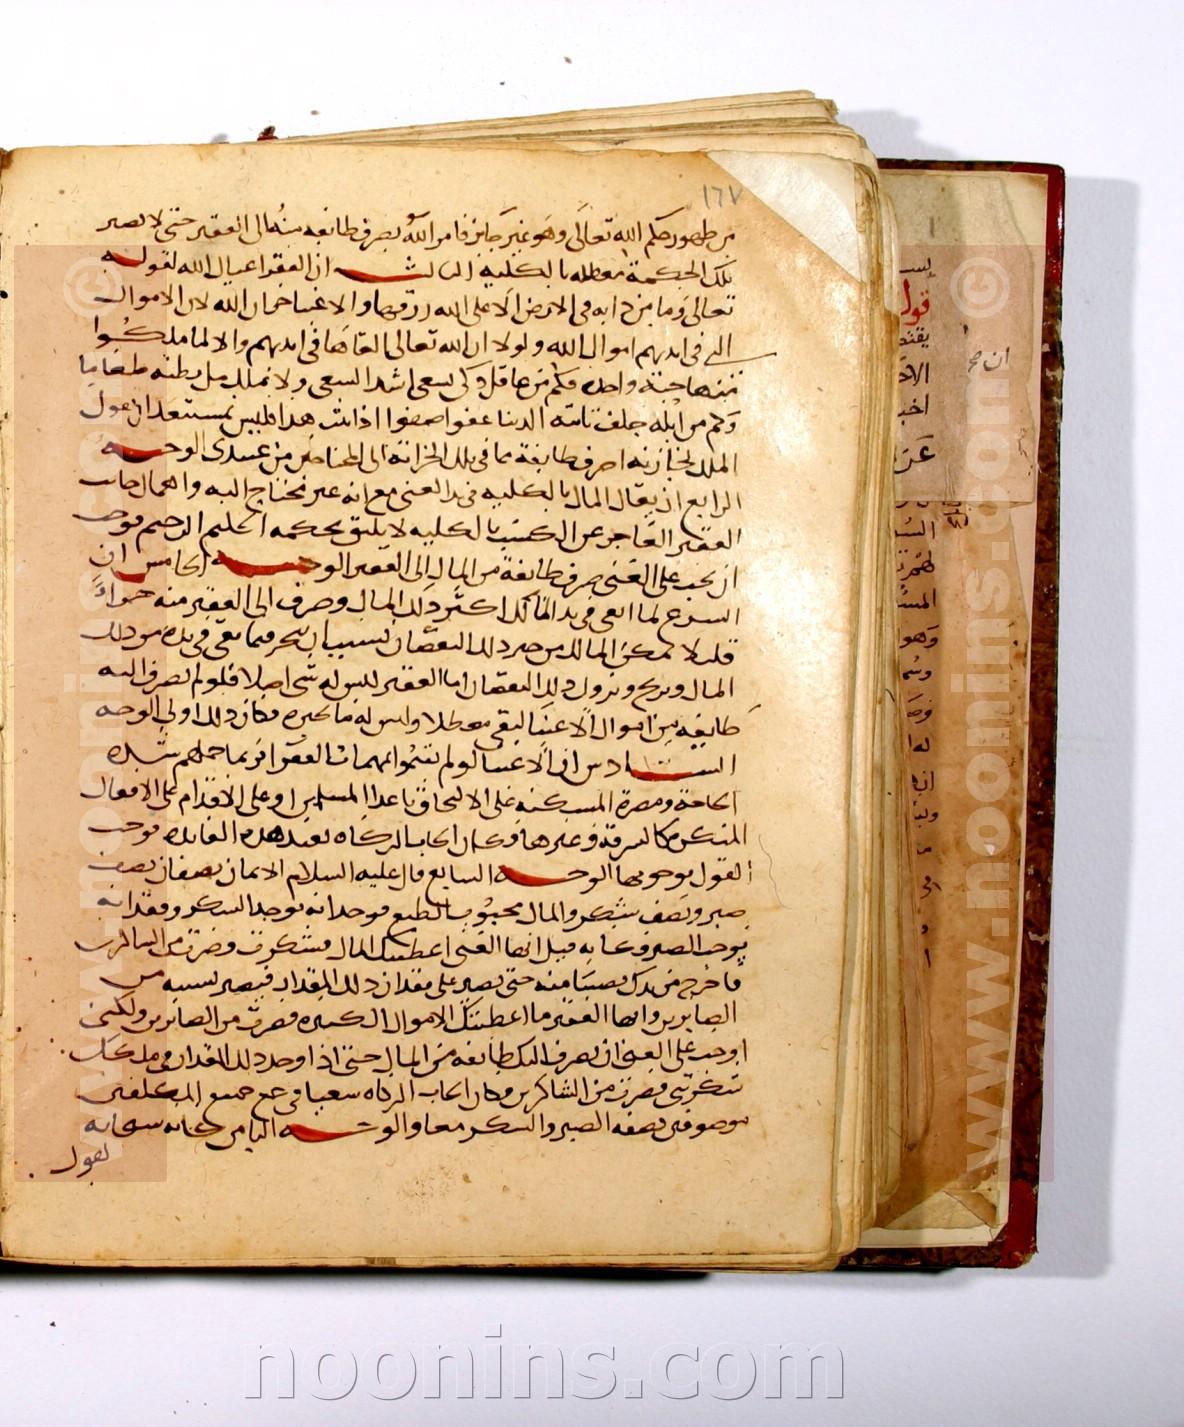 ١٦٧
من ظهور حكم الله تعالى وهو غير جايز فامر الله بصرف طايفة منه الى الفقير حتى لا تصير
تلك الحكمة معطلة بالكلية الثالث ان الفقرا عيال الله لقوله
تعالى وما من دابة في الارض الا على الله رزقها والاغنيا خزان الله لان الاموال
التي في ايديهم اموال الله ولولا ان الله تعالى القاها في ايديهم والا لما ملكوا
منها حبة واحدة فكم من عاقل ذكي يسعى اشد السعي ولا يملك ملء بطنه طعاما
وكم من ابله جلف تاتيه الدنيا عفوا صفوا اذا ثبت هذا فليس بمستبعد ان يقول
الملك لخازنه اصرف طايفة مما في تلك الخزانة الى المحتاجين من عبيدي الوجه
الرابع ان يقال المال بالكلية في يد الغني مع انه غير محتاج اليه واهمال جانب
الفقير العاجز عن الكسب بالكلية لا يليق بحكمة الحكيم الرحيم فوجب
ان يجب على الغني صرف طايفة من المال الى الفقير الوجه الخامس ان
الشرع لما ابقى في يد المالك اكثر ذلك المال وصرف الى الفقير منه جزوا
قليلا تمكن المالك من جبر ذلك النقصان بسبب ان يتجر فيما بقي في يده من ذلك
المال ويربح ويزول ذلك النقصان اما الفقير ليس له شي اصلا فلو لم يصرف اليه
طايفة من اموال الاغنيا لبقي معطلا وليس له ما يجبره فكان ذلك اولى الوجه
السادس ان الاغنيا لو لم يقوموا بمهمات الفقرا فربما حملهم شدة
الحاجة ومضرة المسكنة على الالتحاق باعدا المسلمين او على الاقدام على الافعال
المنكرة كالسرقة وغيرها فكان ايجاب الزكاة يفيد هذه الفايدة فوجب
القول بوجوبها الوجه السابع قال عليه السلام الايمان نصفان نصف
صبر ونصف شكر والمال محبوب بالطبع فوجدانه يوجب الشكر وفقدانه
يوجب الصبر وكانه قيل ايها الغني اعطيتك المال فشكرت فصرت من الشاكرين
فاخرج من يدك نصيبا منه حتى تصبر على فقدان ذلك المقدار فتصير بسببه من
الصابرين وايها الفقير ما اعطيتك الاموال الكثيرة فصبرت من الصابرين ولكني
اوجب على الغني ان يصرف اليك طايفة من المال حتى اذا وجد ذلك المقدار في ملكك
شكرتني فصرت من الشاكرين فكان ايجاب الزكاة سعيا في جمع جميع المكلفين
موصوفين بصفة الصبر والشكر معا والوجه الثامن كانه سبحانه
يقول
ان صح
قول
يقتض
وهو
www.noonins.com
© www.noonins.com
noonins.com